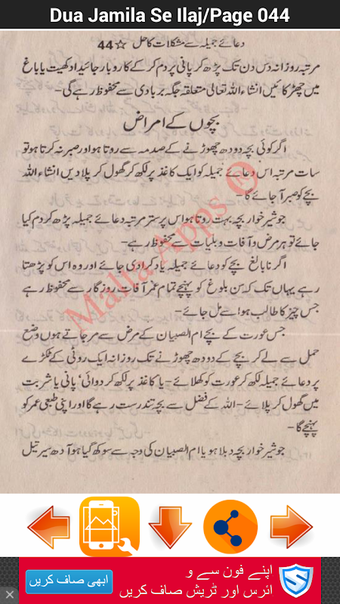 Dua Jamila Se Ilaj/Page 044
دعائے جمیلہ سے مشکلات کا حل ☆ 44
مرتبہ روزانہ دس دن تک پڑھ کر پانی پر دم کر کے کاروبار جائیداد کھیت یا باغ
میں چھڑکا کئیں انشاء اللہ تعالیٰ متعلقہ جگہ بربادی سے محفوظ رہے گی۔
بچوں کے امراض
اگر کوئی بچہ دودھ چھوڑنے کے صدمہ سے روتا ہو اور صبر نہ کرتا ہو تو
سات مرتبہ اس دعائے جمیلہ کو ایک کاغذ پر لکھ کر گھول کر پلا دیں انشاء اللہ
بچے کو صبر آ جائے گا۔
جو شیر خوار بچہ بہت روتا ہو اس پر ستر مرتبہ دعائے جمیلہ پڑھ کر دم کیا
جائے تو ہر مرض و آفات و بلیات سے محفوظ رہے۔
اگر نابالغ بچے کو دعائے جمیلہ یاد کرا دی جائے اور وہ اس کو پڑھتا
رہے یہاں تک کہ سن بلوغ کو پہنچے تمام عمر آفات روزگار سے محفوظ رہے
جس چیز کا طالب ہو اسے مل جائے۔
جس عورت کے بچے ام الصبیان کے مرض سے مر جاتے ہوں وضع
حمل سے لے کر بچے کے دودھ چھوڑنے تک روزانہ ایک روٹی کے ٹکڑے
پر دعائے جمیلہ لکھ کر عورت کو کھلائے۔ یا کاغذ پر لکھ کر دوائی' پانی یا شربت
میں گھول کر پلائے۔ اللہ کے فضل سے بچہ تندرست رہے گا اور اپنی طبعی عمر کو
پہنچے گا۔
جو شیر خوار بچہ دبلا ہو یا ام الصبیان کی وجہ سے سوکھ گیا ہو آدھ سیر تیل
Maha Apps ®
اپنے فون سے و
ائرس اور ٹریش صاف کریں
ابھی صاف کریں